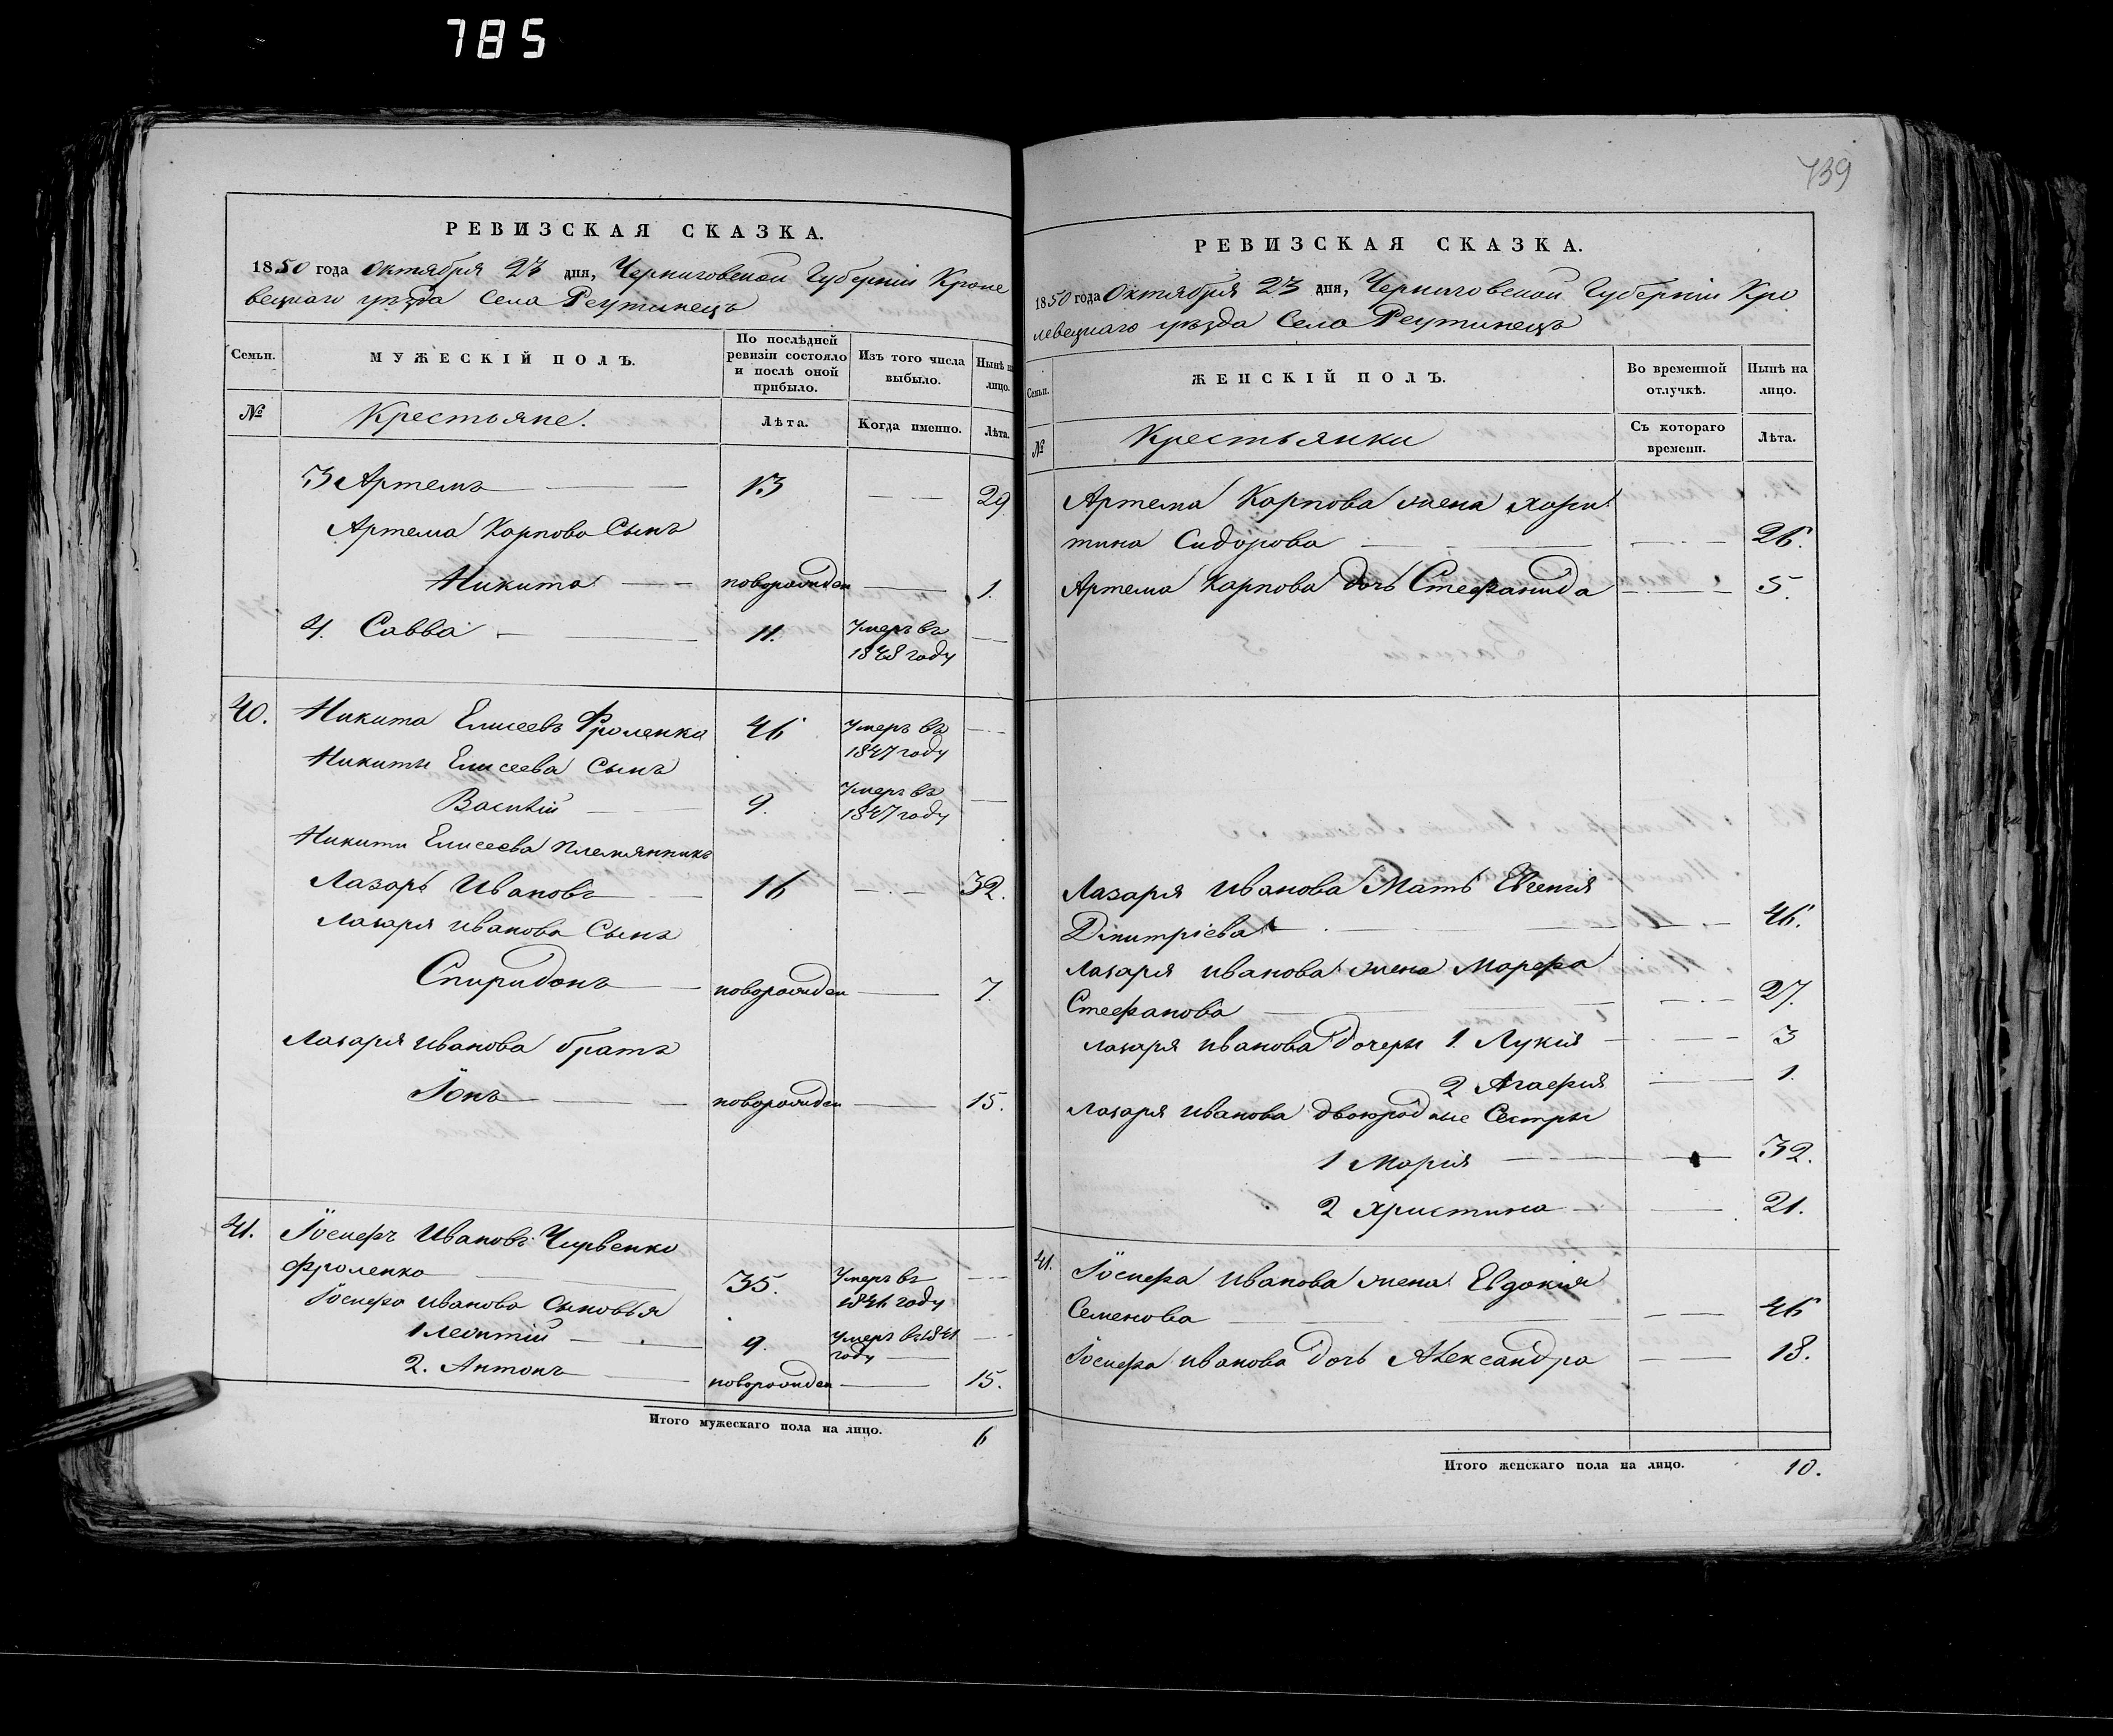 785
РЕВИЗСКАЯ СКАЗКА.
1850 года Октября 23 дня, Черниговской Губерніи Кроле
вецкаго уѣзда Села Реутинецъ
Семьи.
МУЖЕСКІЙ ПОЛЪ.
По послѣдней ревизіи состояло и послѣ оной прибыло.
Изъ того числа выбыло.
Нынѣ на лицо.
№
Крестьяне.
Лѣта.
Когда именно.
Лѣта.
3 Артемъ 13 29
Артема Карпова Сынъ
Никита новорожден 1.
4. Савва 11. Умеръ въ
1848 году
40. Никита Елисеевъ Фроленко 46 Умеръ въ
1847 году
Никиты Елисеева Сынъ
Василій 9. Умеръ въ
1847 году
Никиты Елисеева племянникъ
Лазарь Ивановъ 16 32.
Лазаря Иванова Сынъ
Спиридонъ новорожден 7.
Лазаря Иванова братъ
Іонъ новорожден 15.
41. Іосифъ Ивановъ Чирвенко
Фроленко 35. Умеръ въ
году
Іосифа Иванова Сыновья
1 Леонтій 9. Умеръ въ 1841
году
2. Антонъ новорожден 15.
Итого мужескаго пола на лицо. 6
739
РЕВИЗСКАЯ СКАЗКА.
1850 года Октября 23 дня, Черниговской Губерніи Кро
левецкаго уѣзда Села Реутинецъ
Семьи.
ЖЕНСКІЙ ПОЛЪ.
Во временной отлучкѣ.
Нынѣ на лицо.
№
Крестьянки
Съ котораго времени.
Лѣта.
Артема Карпова жена Хари
тина Сидорова 26.
Артема Карпова дочь Стефанида 5.
Лазаря Иванова Мать Евгенія
Димитріева 46.
Лазаря Иванова жена Марфа
Стефанова 27.
Лазаря Иванова дочери 1. Лукія 3
2 Агафія 1.
Лазаря Иванова двоюродные Сестры
1 Марія 32.
2 Христина 21.
41. Іосифа Иванова жена Евдокія
Семенова 46
Іосифа Иванова дочь Александра 18.
Итого женскаго пола на лицо. 10.